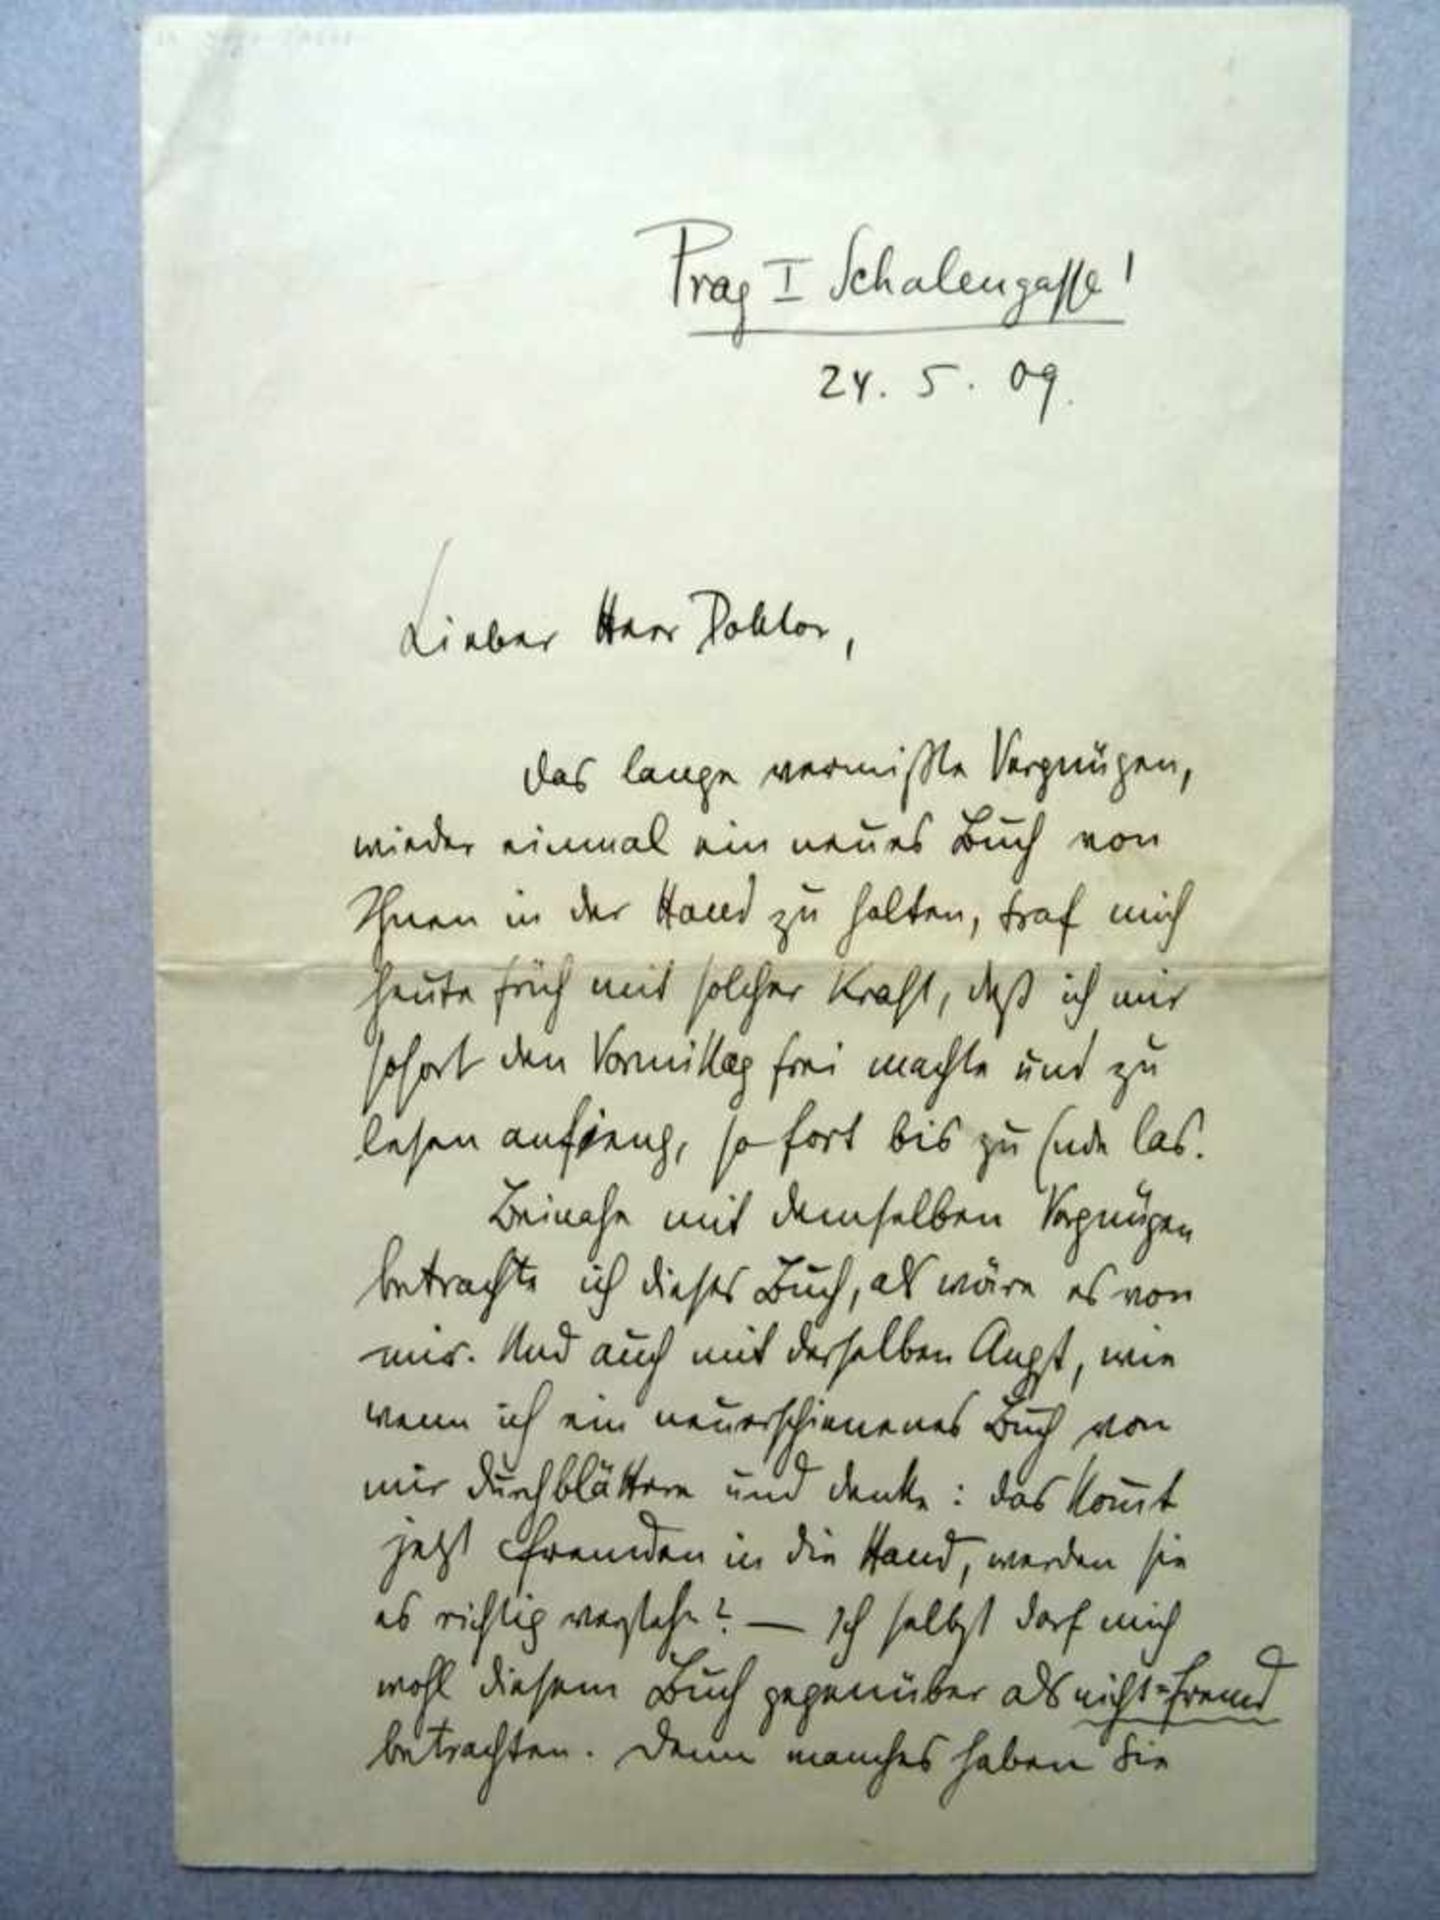 Prag I Schalengasse 1
24. 5. 09.
Lieber Herr Doktor,
das lange vermißte Vergnügen,
wieder einmal ein neues Buch von
Ihnen in der Hand zu halten, traf mich
heute früh mit solcher Kraft, daß ich mir
sofort den Vormittag frei machte und zu
lesen anfieng, so fort bis zu Ende las.
Beinahe mit demselben Vergnügen
betrachte ich dieses Buch, als wäre es von
mir. Und auch mit derselben Angst, wie
wenn ich ein neuerschienenes Buch von
mir durchblättere und denke: das kom̄t
jetzt Fremden in die Hand, werden sie
es richtig verstehn? — Ich selbst darf mich
wohl diesem Buch gegenüber als nicht=fremd
betrachten. Denn manches haben Sie